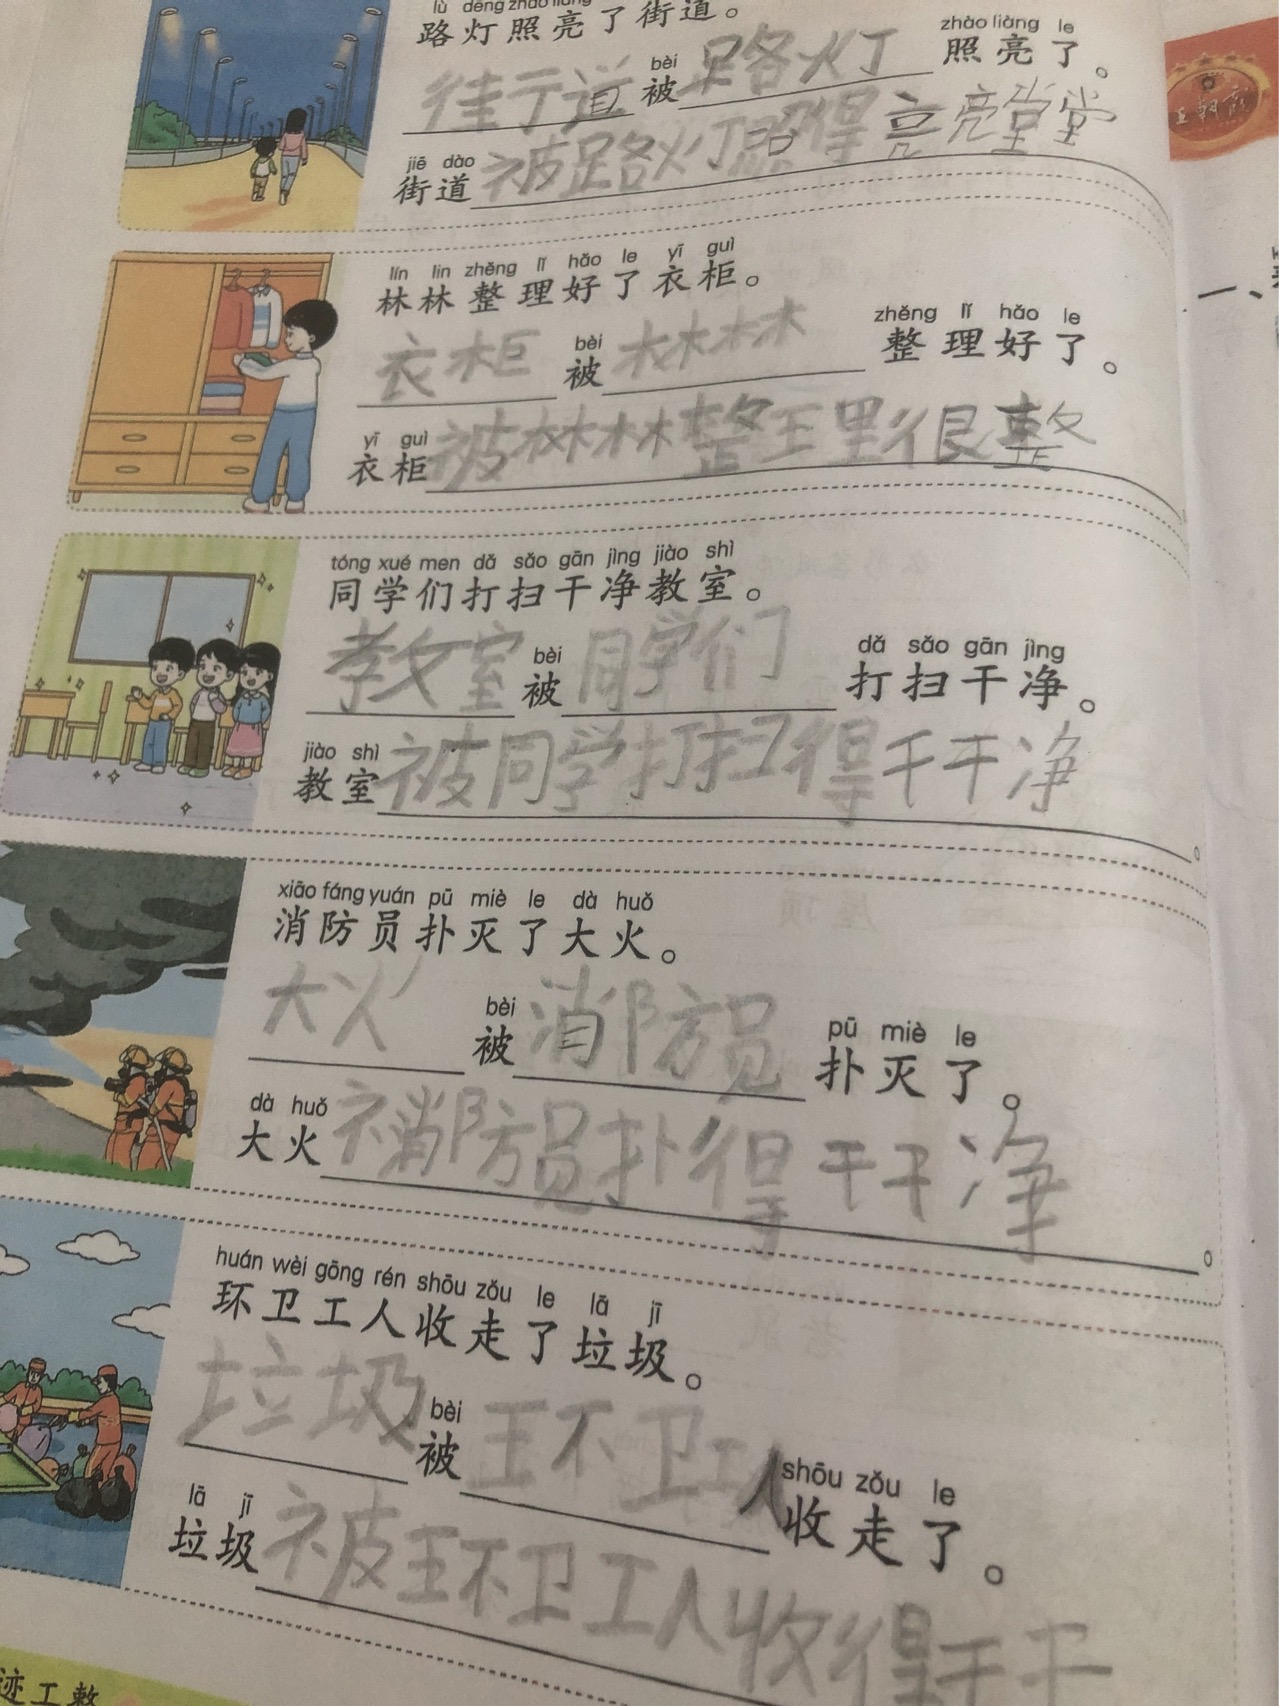 lù dēng zhào liàng
路灯照亮了街道。
bèi zhào liàng le
街道被路灯照亮了。
jiē dào
街道被路灯照得亮亮堂堂
lín lin zhěng lǐ hǎo le yī guì
林林整理好了衣柜。
bèi zhěng lǐ hǎo le
衣柜被林林整理好了。
yī guì
衣柜被林林整理很整
tóng xué men dǎ sǎo gān jìng jiào shì
同学们打扫干净教室。
bèi dǎ sǎo gān jìng
教室被同学们打扫干净。
jiào shì
教室被同学打扫得干干净。
xiāo fáng yuán pū miè le dà huǒ
消防员扑灭了大火。
bèi pū miè le
大火被消防员扑灭了。
dà huǒ
大火消防员扑得干干净。
huán wèi gōng rén shōu zǒu le lā jī
环卫工人收走了垃圾。
bèi shōu zǒu le
垃圾被环卫工人收走了。
lā jī
垃圾被环卫工人收得干干
迹工整
一、